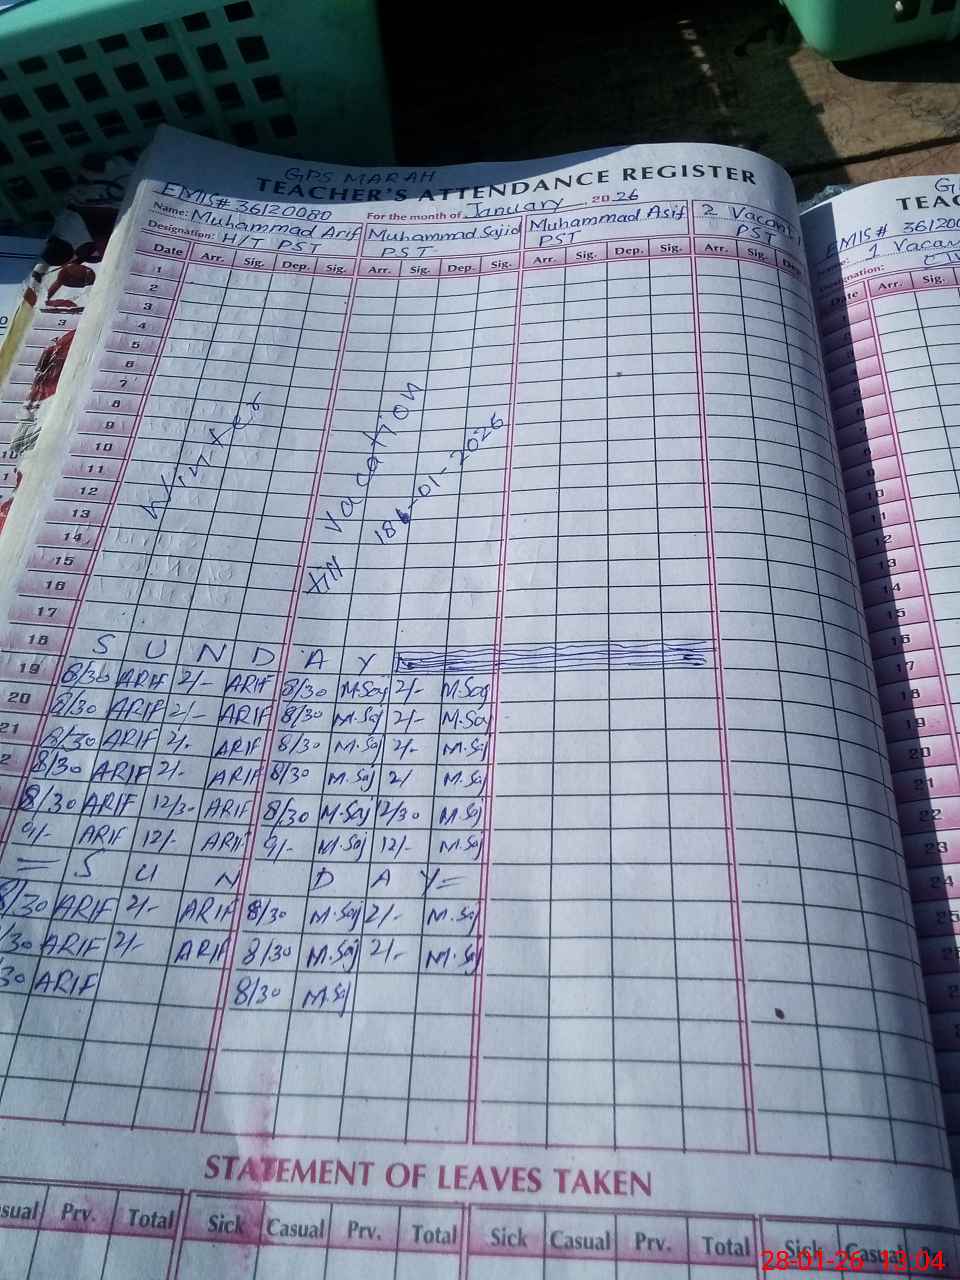 GPS MARAH
TEACHER'S ATTENDANCE REGISTER
EMIS# 36120080
For the month of January 2026
Name: Muhammad Arif Muhammad Sajid Muhammad Asif 2 Vacant
Designation: H/T PST PST PST PST
Date Arr. Sig. Dep. Sig. Arr. Sig. Dep. Sig. Arr. Sig. Dep. Sig. Arr. Sig. Dep.
1
2
3
4
5
6
7
8
9
10
11
12
13
14
15
16
17
Winter Vacation
till 18-01-2026
18 S U N D A Y
19 8/30 ARIF 2/- ARIF 8/30 M.Saj 2/- M.Saj
20 8/30 ARIF 2/- ARIF 8/30 M.Saj 2/- M.Saj
21 8/30 ARIF 2/- ARIF 8/30 M.Saj 2/- M.Saj
2 8/30 ARIF 2/- ARIF 8/30 M.Saj 2/ M.Saj
8/30 ARIF 12/30 ARIF 8/30 M.Saj 12/30 M.Saj
9/- ARIF 12/- ARIF 9/- M.Saj 12/- M.Saj
= S U N D A Y =
8/30 ARIF 2/- ARIF 8/30 M.Saj 2/- M.Saj
/30 ARIF 2/- ARIF 8/30 M.Saj 2/- M.Saj
30 ARIF 8/30 M.Saj
STATEMENT OF LEAVES TAKEN
asual Prv. Total Sick Casual Prv. Total Sick Casual Prv. Total Sick Casual
TEAC
EMIS# 36120
Name: 1 Vacan
Designation:
Date Arr. Sig.
10
11
12
13
14
15
16
17
18
19
20
21
22
23
24
25
28-01-26 13:04